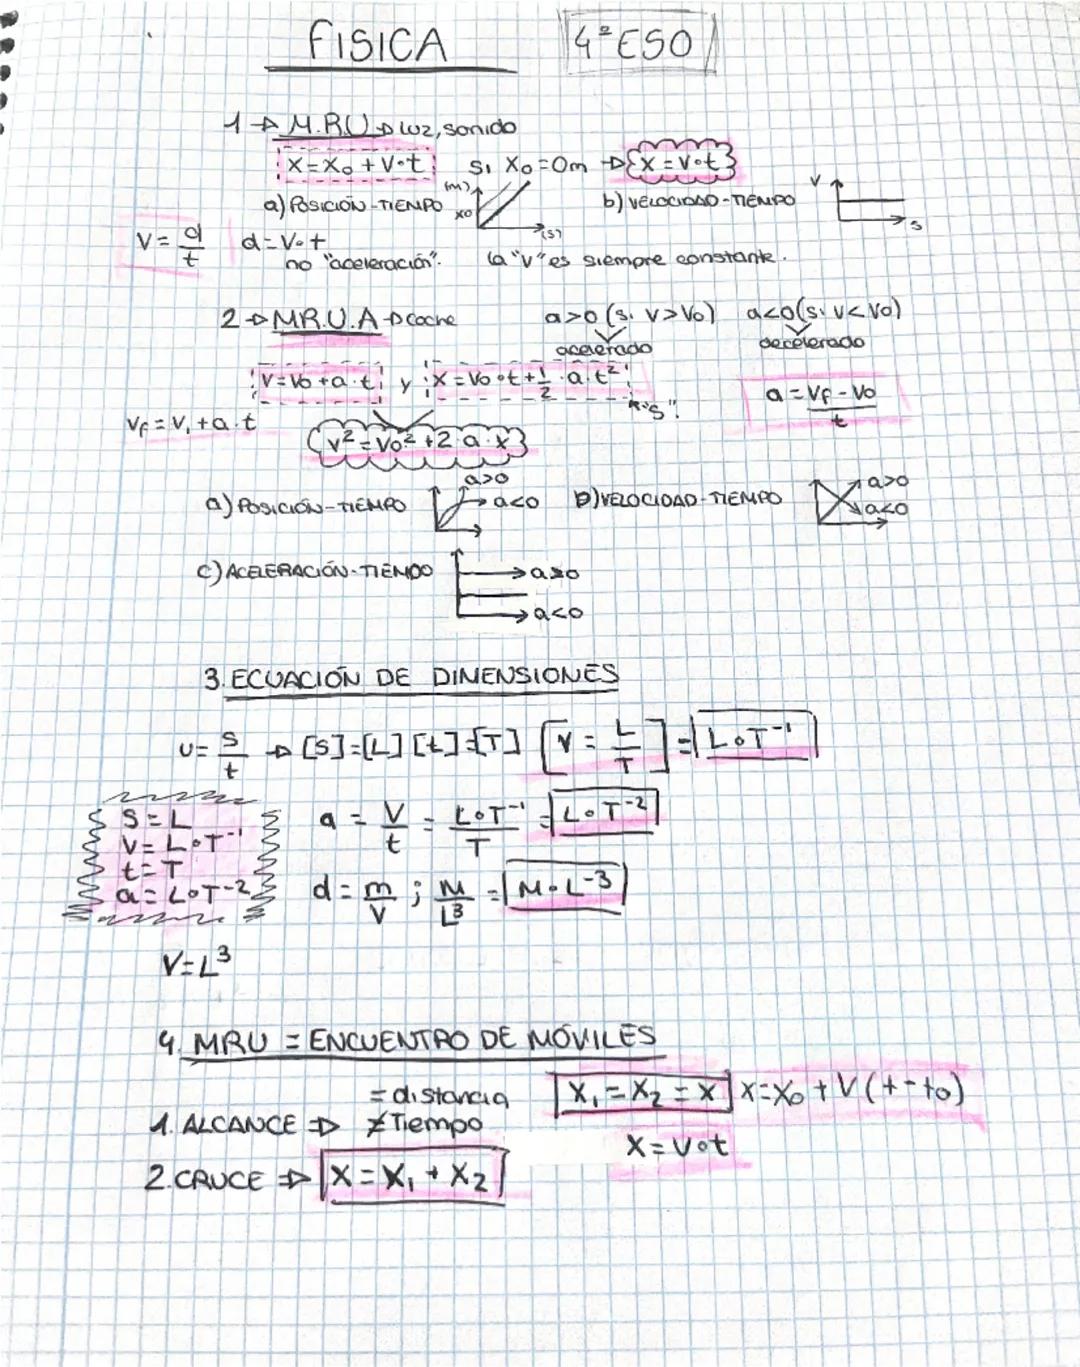 FISICA 4º ESO
1 → M.R.U → luz, sonido
X = X₀ + V·t Si X₀ = 0m → X = V·t
a) POSICIÓN-TIEMPO (m) X₀ (s) b) VELOCIDAD-TIEMPO V s
V = d/t d = V·t
no "aceleración". la "v" es siempre constante.
2 → MR.U.A → coche a>0 (si V>V₀) a<0 (si V<V₀)
acelerado decelerado
V = V₀ + a·t y X = V₀·t + 1/2·a·t² a = Vf - V₀/t
"s".
Vf = V₁ + a·t
V² = V₀² + 2·a·x
a) POSICIÓN-TIEMPO a>0 a<0 b) VELOCIDAD-TIEMPO a>0 a<0
c) ACELERACIÓN-TIEMPO a>0
a<0
3. ECUACIÓN DE DIMENSIONES
v = s/t → [S]=[L] [t]=[T] [V = L/T] = L·T⁻¹
S = L
V = L·T⁻¹
t = T
a = L·T⁻²
a = V/t = L·T⁻¹/T = L·T⁻²
d = m/V ; M/L³ = M·L⁻³
V = L³
4. MRU = ENCUENTRO DE MÓVILES
1. ALCANCE ⇒ = distancia ≠ Tiempo X₁ = X₂ = X X = X₀ + V(t - t₀)
X = V·t
2. CRUCE ⇒ X = X₁ + X₂